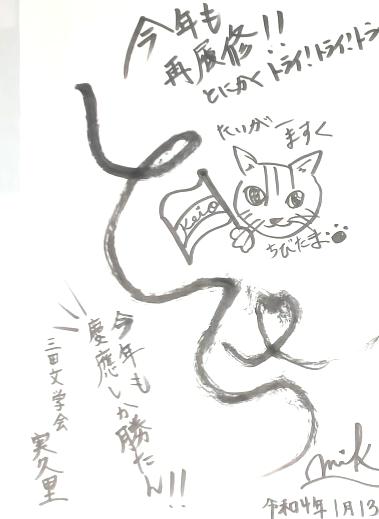 今年も
再履修!!
とにかく トライ!トライ!トラ
たいがーますく
Keio
ちびたま
今年も
慶應しか勝たん!!
三田文学会
実久里
mik
令和4年1月13